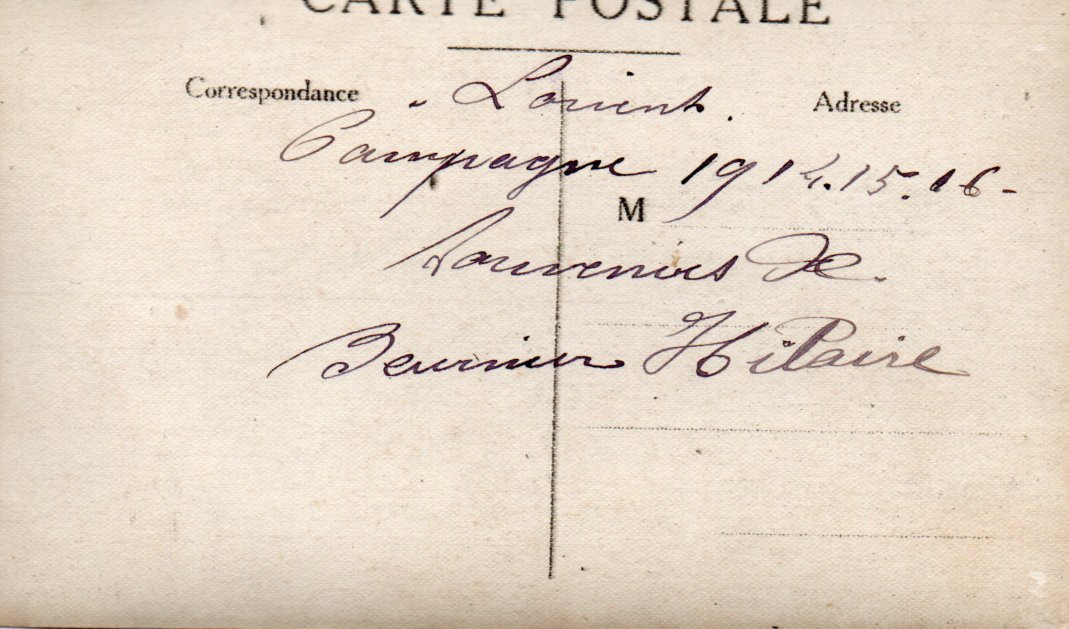 CARTE POSTALE
Correspondance
Adresse
Lorient.
Campagne 1914.15.16-
M
Souvenirs de
Beurnier Hilaire